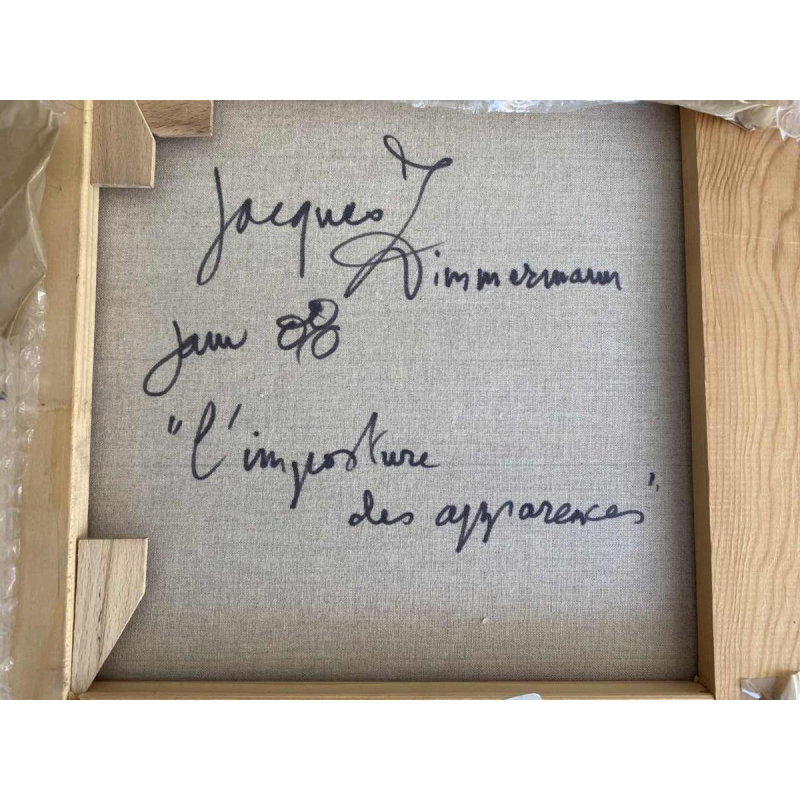 Jacques Zimmermann
Janv 88
"l'imposture
des apparences"